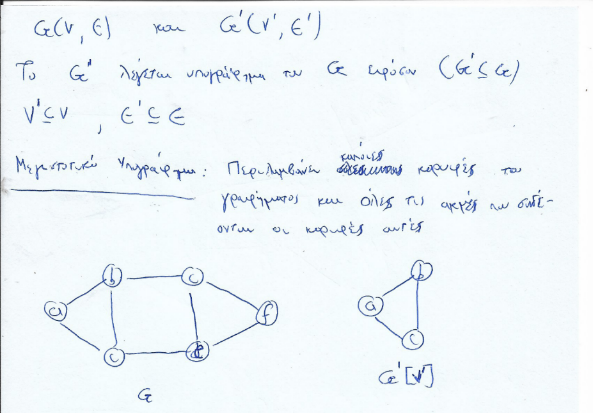 G(V, E) και G'(V', E')
Το G' λέγεται υπογράφημα του G εφόσον (G' ⊆ G)
V' ⊆ V , E' ⊆ E
Μεγιστοτικό Υπογράφημα: Περιλαμβάνει κάποιες κορυφές του
γραφήματος και όλες τις ακμές που συνδέ-
ονται οι κορυφές αυτές
b c b
a f a
c c
G G'[V']